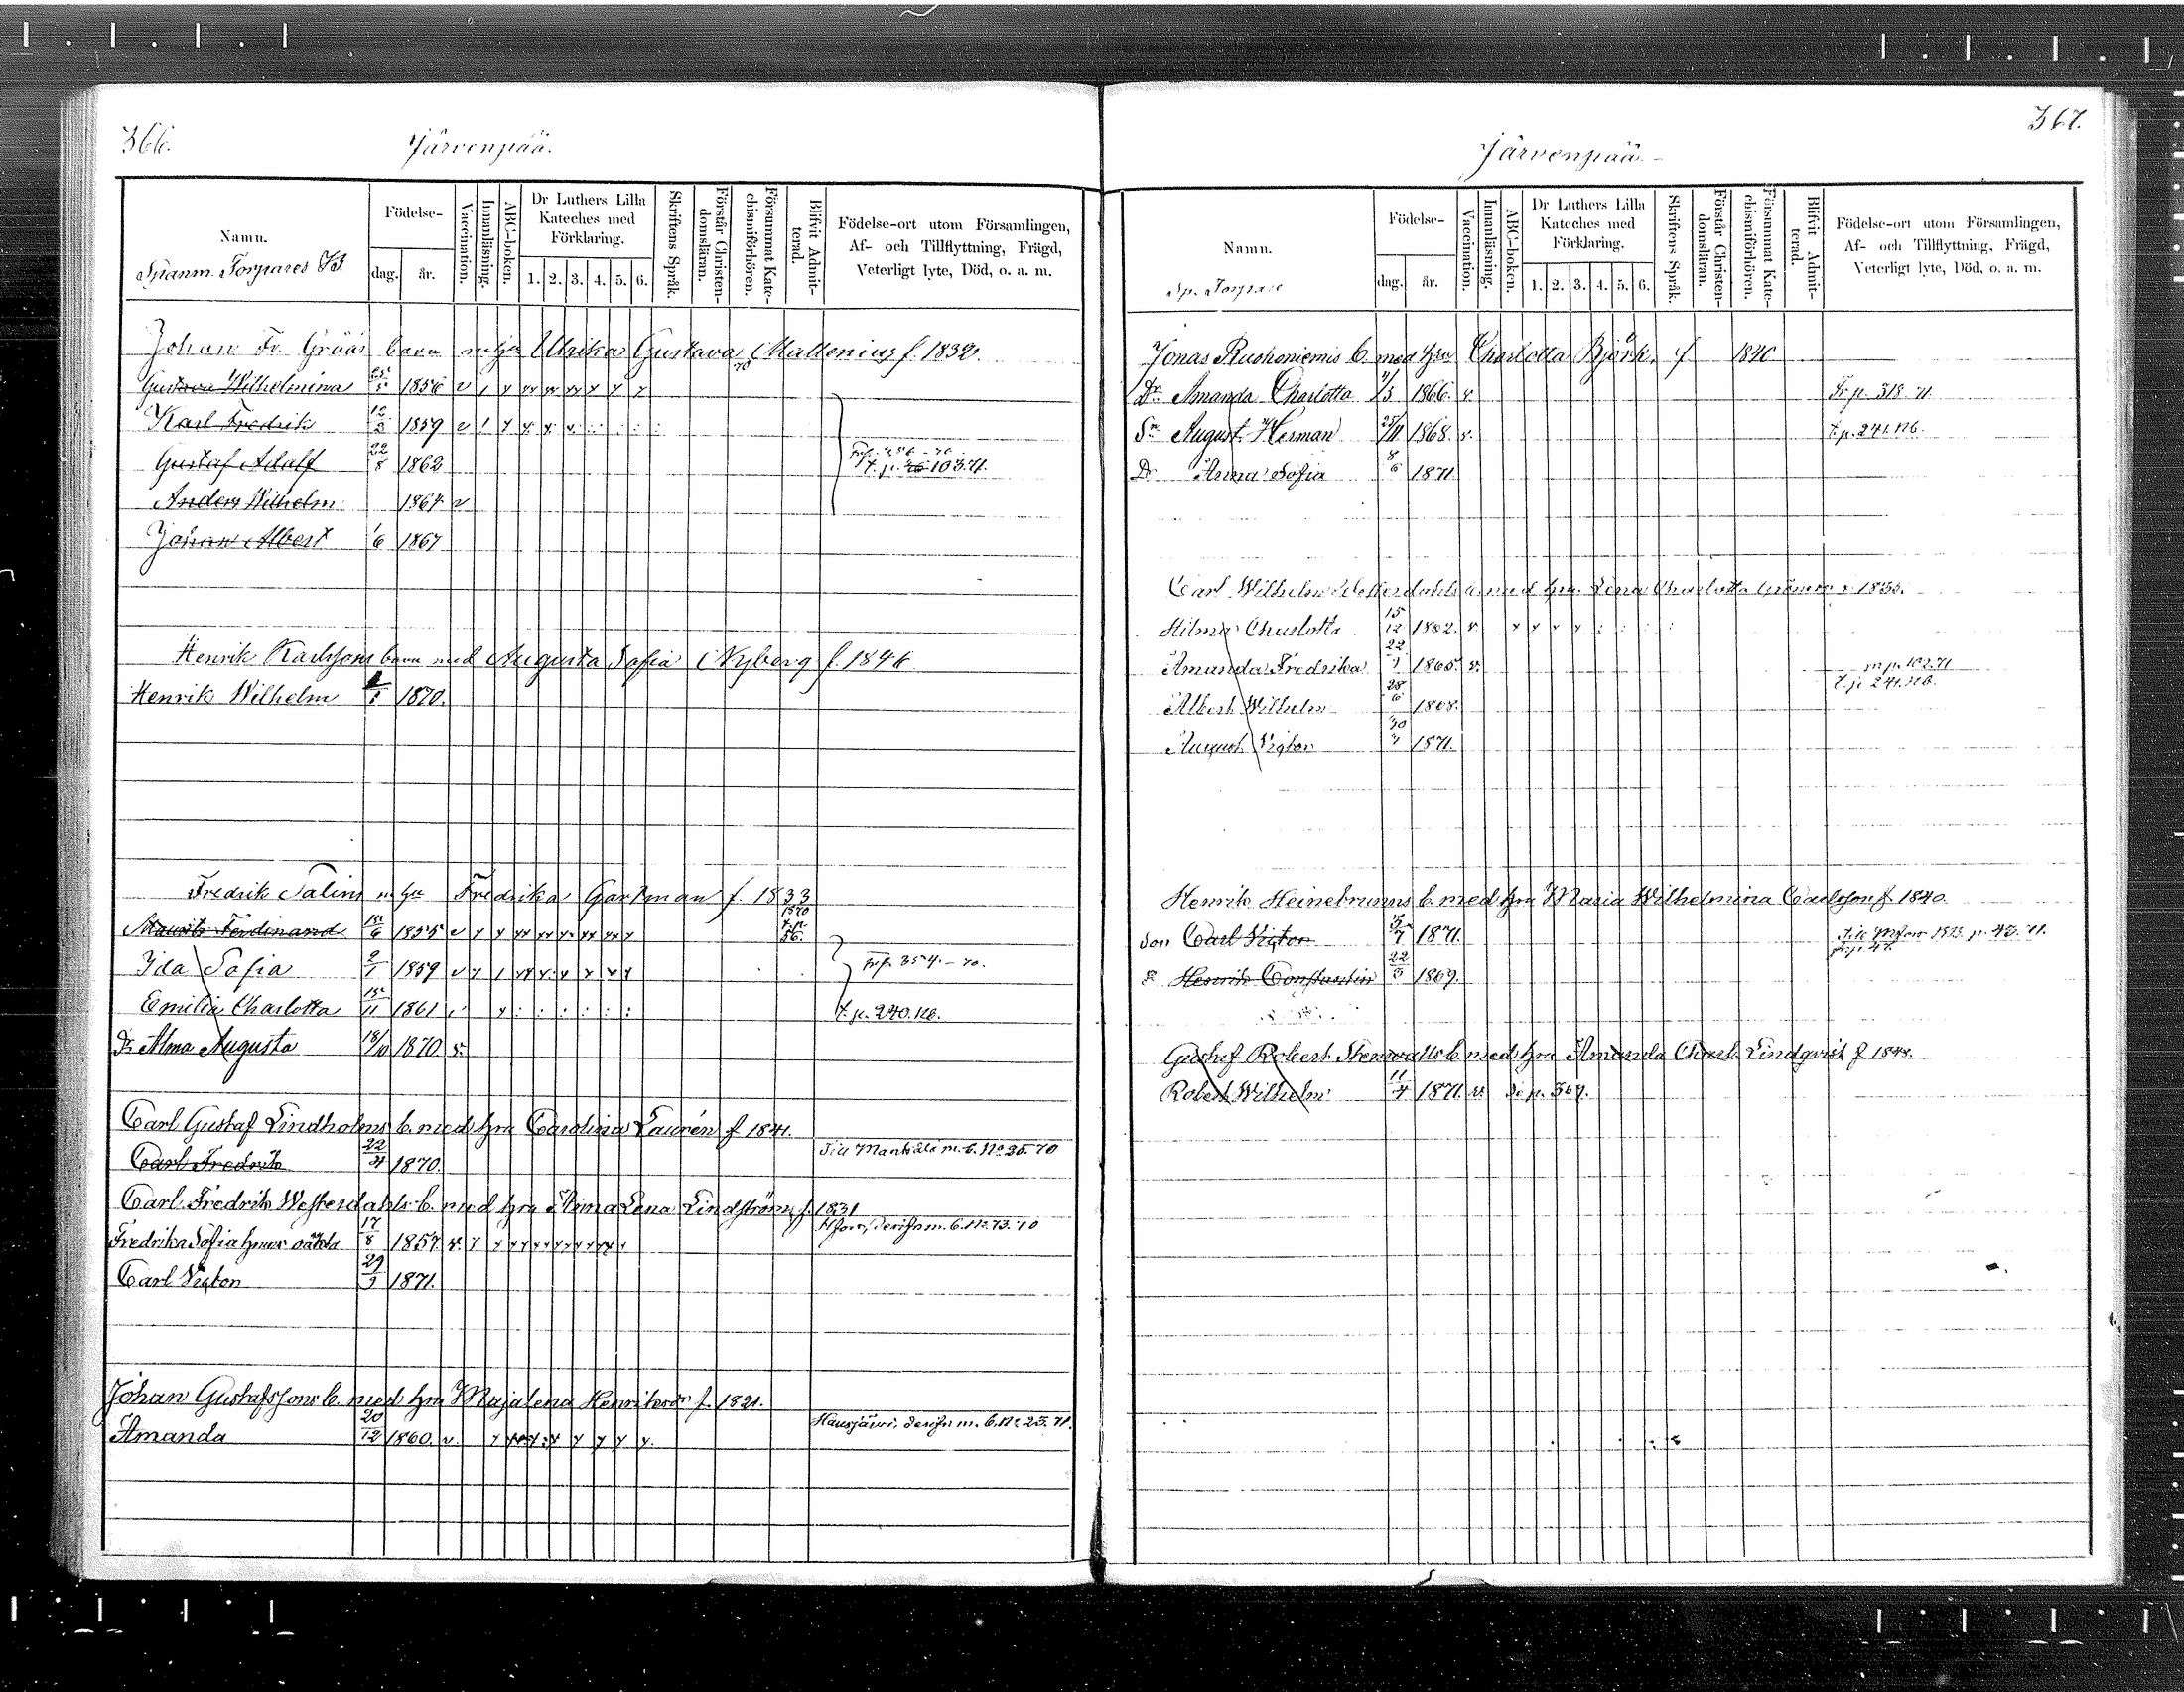 366.
Järvenpää.
Namn.
Spanm. Torpares
Födelse-
dag.
år.
Vaccination.
Innanläsning.
ABC-boken.
Dr Luthers Lilla
Kateches med
Förklaring.
1. 2. 3. 4. 5. 6.
Skriftens Språk.
Förstår Christen-
domsläran.
Försummat Kate-
chismiförhören.
Blifvit Admit-
terad.
Födelse-ort utom Församlingen,
Af- och Tillflyttning, Frägd,
Veterligt lyte, Död, o. a. m.
Johan Fr. Grääs barn m hu Ulrika Gustava Mallenius f. 1832.
Gustava Wilhelmina 25/5 1856 v
Karl Fredrik 12/3 1859 v
Gustaf Adolf 22/8 1862
t. p. 103.71.
Anders Wilhelm 1864 v
Johan Albert 1/6 1867
Henrik Karlssons barn med Augusta Sofia Nyberg f. 1846
Henrik Wilhelm 1870.
Fredrik Salins m hu Fredrika Gartman f. 1833
Maurits Ferdinand 1855 v 1870 t.p. 56.
Ida Sofia 2/1 1859 v
fr p. 354. - 70.
Emilia Charlotta 1861
t. p. 240.
Dr Alma Augusta 18/10 1870 v.
Carl Gustaf Lindholms b. med hru Carolina Laurén f 1841.
Carl Fredrik 22/4 1870.
Till Mantsälä m. b. No 35. 70
Carl Fredrik Westerdahls b. med hru Anna Lena Lindström f. 1831
Fredrika Sofia 17/8 1857. v.
m. b. No. 73. 70
Carl Victor 29/3 1871.
Johan Gustafssons b. med hru Majalena Henriksdr f. 1821.
Amanda 20/12 1860. v.
Hausjärvi m. b. No. 23. 71.
367.
Järvenpää.
Namn.
Sp. Torpare
Födelse-
dag.
år.
Vaccination.
Innanläsning.
ABC-boken.
Dr Luthers Lilla
Kateches med
Förklaring.
1. 2. 3. 4. 5. 6.
Skriftens Språk.
Förstår Christen-
domsläran.
Försummat Kate-
chismiförhören.
Blifvit Admit-
terad.
Födelse-ort utom Församlingen,
Af- och Tillflyttning, Frägd,
Veterligt lyte, Död, o. a. m.
Jonas Ruohoniemis b. med hru Charlotta Björk, f 1840
Dr Amanda Charlotta 1866. v.
Fr p. 318. 71.
Sn August Herman 25/11 1868. v.
t. p. 241.
Dr Anna Sofia 8/6 1871
Carl Wilhelm Westerdahls b. med hru Lena Charlotta
Hilma Charlotta 15/12 1862. v.
Amanda Fredrika 22 1865. v.
p. 102. 71
t. p. 241.
Albert Wilhelm 28/6 1868.
August Victor 30 1871.
Henrik Heinebrunns b. med hru Maria Wilhelmina Carlsson f. 1840.
Son Carl Victor 1871.
p. 43. 71.
Henrik Constantin 22 1869.
Gustaf Robert Stenwalls b. med hru Amanda Charl. Lindqvist f 1844.
Robert Wilhelm 11/4 1871. v. Se p. 369.